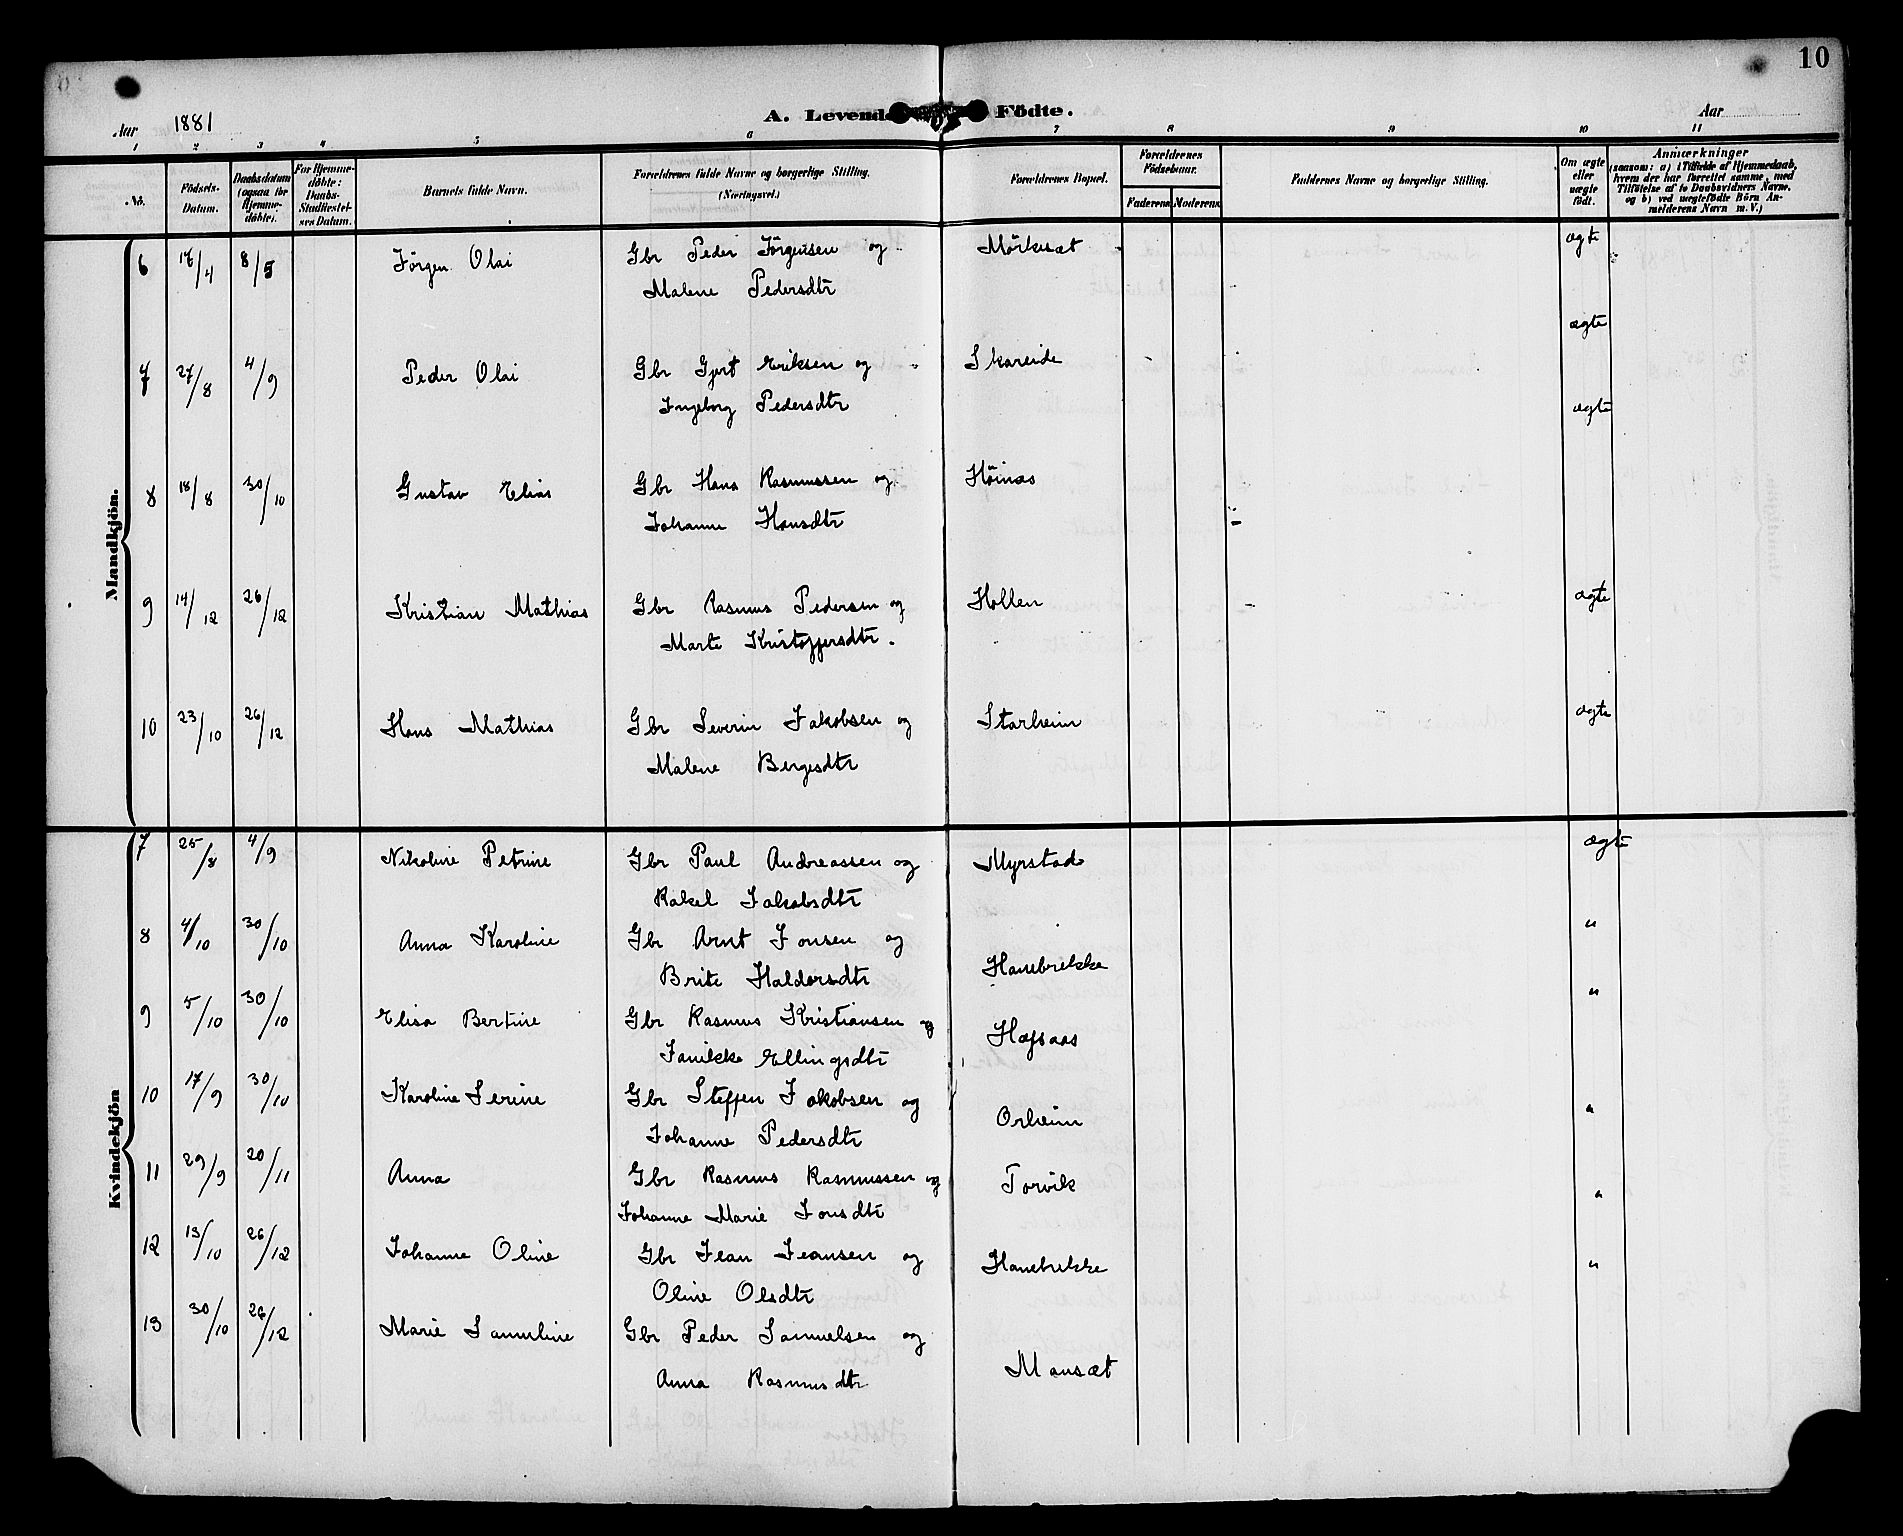 10
Aar 1881 A. Levende Födte. Aar
1 2 3 4 5 6 7 8 9 10 11
No. Födsels-Datum. Daabsdatum (ogsaa for Hjemme-döbte). For Hjemme-döbte: Daabs-Stadfæstel-ses Datum. Barnets fulde Navn. Forældrenes fulde Navne og borgerlige Stilling. (Næringsvei.) Forældrenes Bopæl. Forældrenes Födselsaar. Faderens Moderens Faddernes Navne og borgerlige Stilling. Om ægte eller uægte født. Anmærkninger (saasom: a) i Tilfælde af Hjemmedaab, hvem der har forrettet samme, med Tilföielse af to Daabsvidners Navne, og b) ved uægtefödte Börn Anmelderens Navn m. V.)
Mandkjön.
6 /4 8/5 Jörgen Olai Gbr Peder Jörgensen og Mörkesæt ægte
Malene Pedersdtr
ægte
7 27/8 4/9 Peder Olai Gbr Gjert Eriksen og Skareide
Ingeborg Pedersdtr ægte
8 18/8 30/10 Gustav Elias Gbr Hans Rasmussen og Höinæs
Johanne Hansdtr
9 14/12 26/12 Kristian Mathias Gbr Rasmus Pedersen og Hollen ægte
Marte Kristoffersdtr.
10 23/10 26/12 Hans Mathias Gbr Severin Jakobsen og Starheim ægte
Malene Bergesdtr
Kvindekjön
7 25/8 4/9 Nikoline Petrine Gbr Paul Andreassen og Myrstad ægte
Rakel Jakobsdtr
8 4/10 30/10 Anna Karoline Gbr Arnt Jonsen og Hanebrekke "
Brite Haldorsdtr
9 5/10 30/10 Elisa Bertine Gbr Rasmus Kristiansen og Hafsaas "
Janikke Ellingsdtr
10 17/9 30/10 Karoline Serine Gbr Steffen Jakobsen og Orheim "
Johanne Pedersdtr
11 29/9 20/11 Anna Gbr Rasmus Rasmussen og Torvik "
Johanne Marie Jonsdtr
12 13/10 26/12 Johanne Oline Gbr Jean Jeansen og Hanebrekke "
Oline Olsdtr
13 30/10 26/12 Marie Samuline Gbr Peder Samuelsen og Mansæt
Anna Rasmusdtr